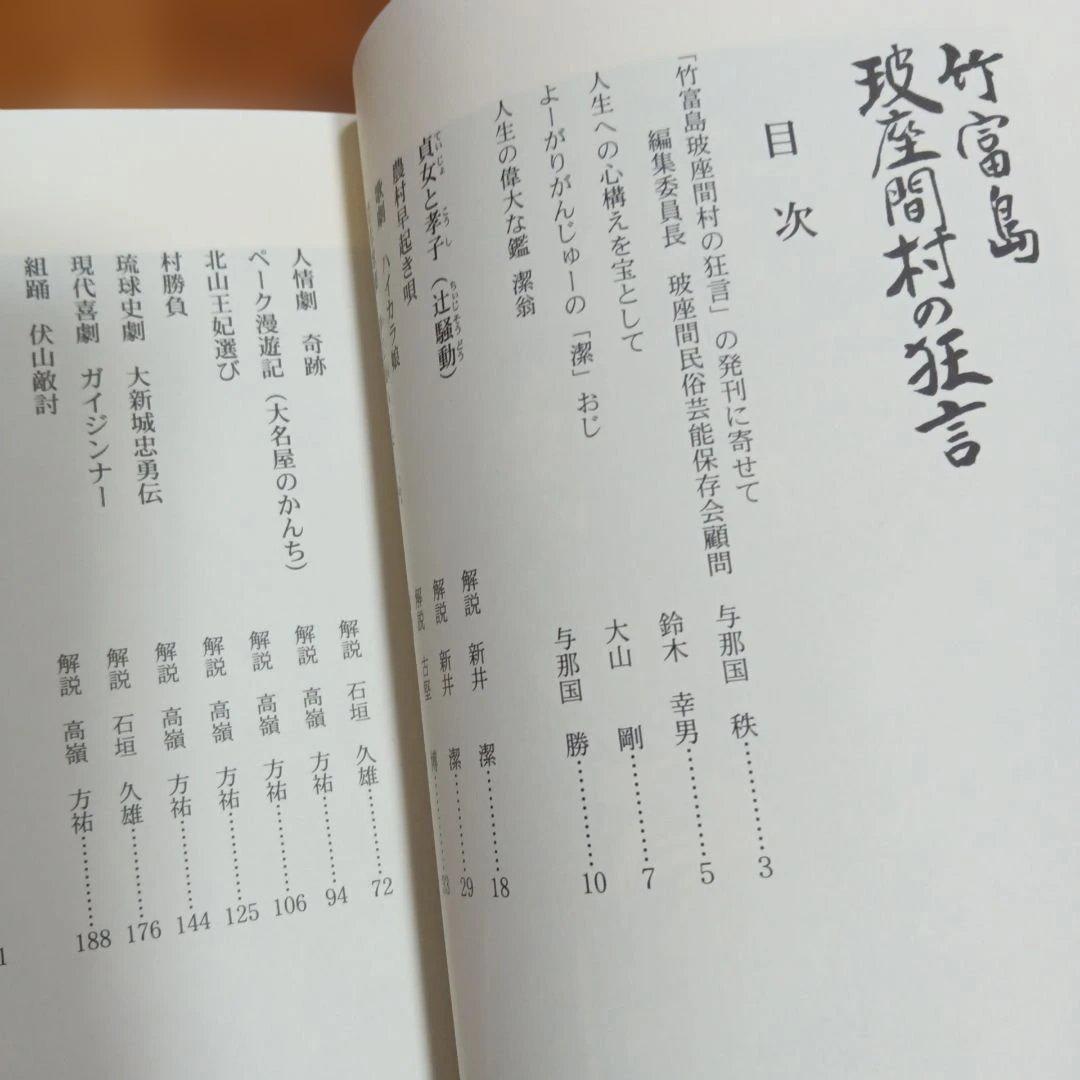 竹富島
玻座間村の狂言
目次
「竹富島玻座間村の狂言」の発刊に寄せて
編集委員長 玻座間民俗芸能保存会顧問 与那国 秩………3
人生への心構えを宝として 鈴木 幸男………5
よーがりがんじゅーの「潔」おじ 大山 剛………7
人生の偉大な鑑 潔翁 与那国 勝………10
貞女と孝子(辻騒動) 解説 新井 潔………18
ていじょ こうし ちいじそうどう
農村早起き唄 解説 新井 潔………29
歌劇 ハイカラ娘 解説 古堅 博………33
人情劇 奇跡 解説 石垣 久雄………72
ペーク漫遊記(大名屋のかんち) 解説 高嶺 方祐………94
北山王妃選び 解説 高嶺 方祐………106
村勝負 解説 高嶺 方祐………125
琉球史劇 大新城忠勇伝 解説 高嶺 方祐………144
現代喜劇 ガイジンナー 解説 石垣 久雄………176
組踊 伏山敵討 解説 高嶺 方祐………188